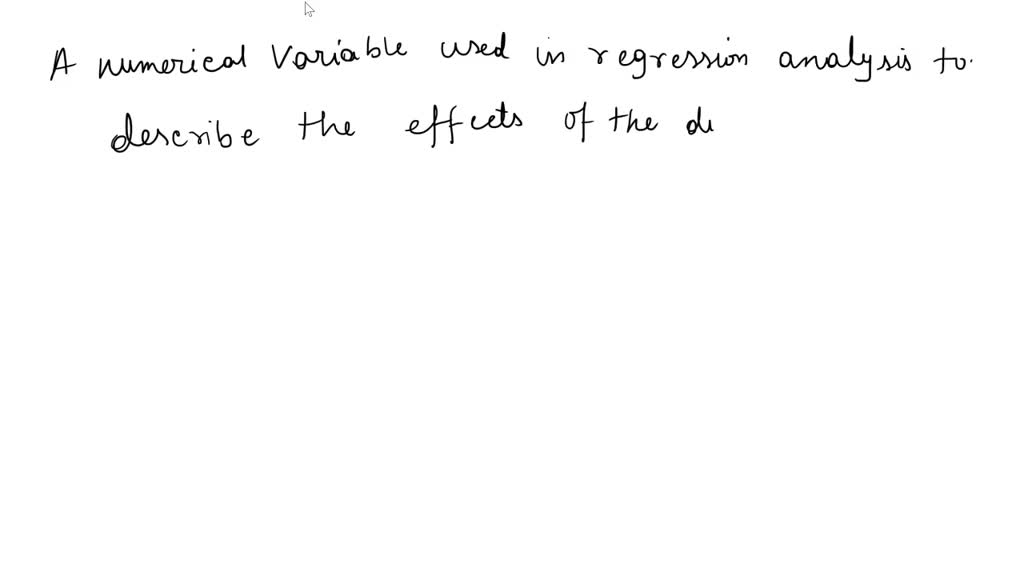 A numerical variable used in regression analysis to
describe the effects of the di